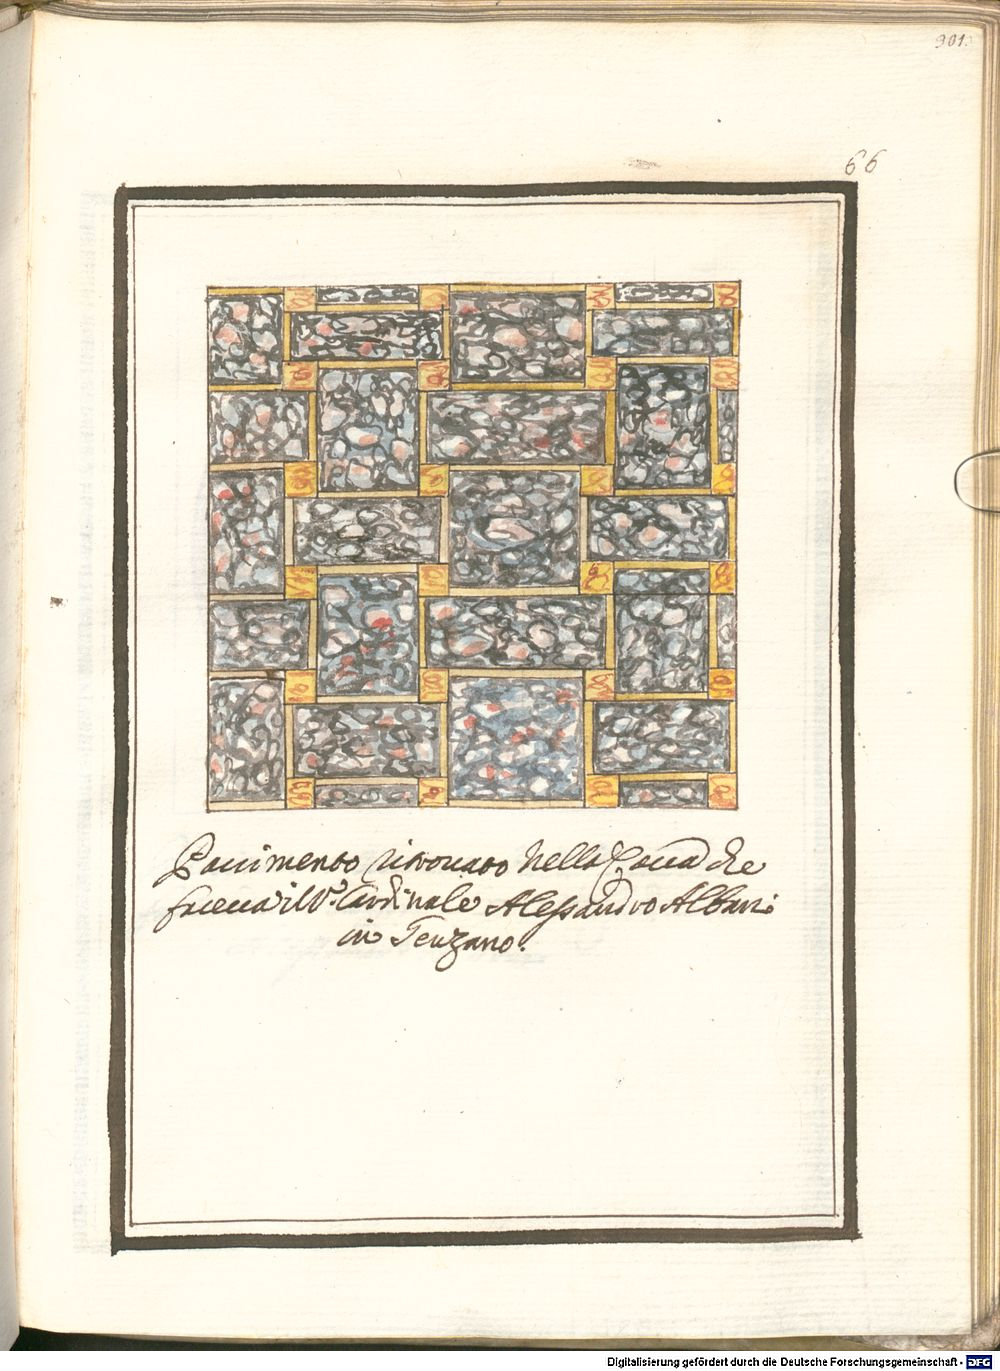 301.
66
Pavimento ritrovato nella Cava che
faceva il S.r Cardinale Alessandro Albani
in Genzano.
Digitalisierung gefördert durch die Deutsche Forschungsgemeinschaft - DFG